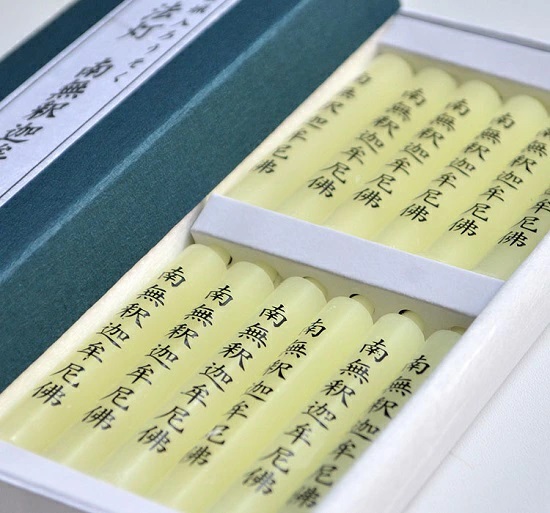 ろうそく
法灯 南無釈迦牟
南無釈迦牟尼佛
南無釈迦牟尼佛
南無釈迦牟尼佛
南無釈迦牟尼佛
南無釈迦牟尼佛
南無釈迦牟尼佛
南無釈迦牟尼佛
南無釈迦牟尼佛
南無釈迦牟尼佛
南無釈迦牟尼佛